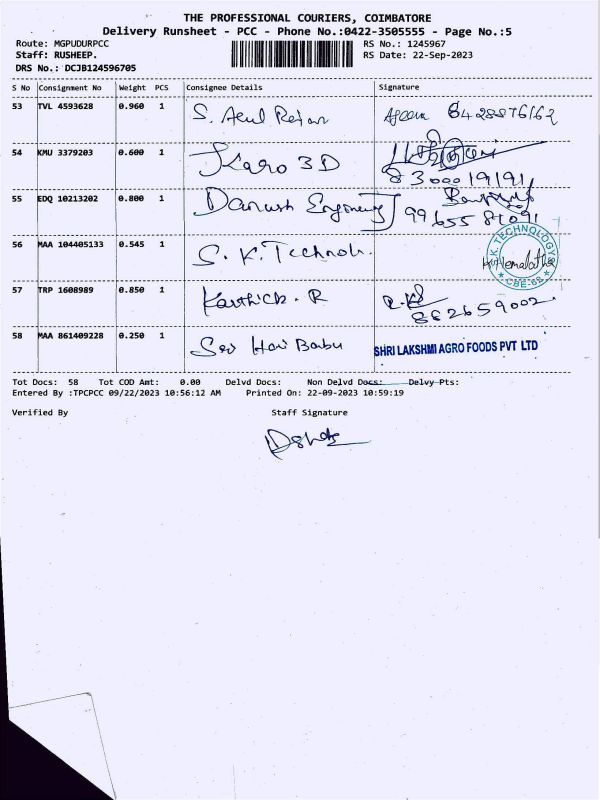 THE PROFESSIONAL COURIERS, COIMBATORE
Delivery Runsheet - PCC - Phone No.:0422-3505555 - Page No.:5
Route: MGPUDURPCC RS No.: 1245967
Staff: RUSHEEP. RS Date: 22-Sep-2023
DRS No.: DCJB124596705
S No Consignment No Weight PCS Consignee Details Signature
53 TVL 4593628 0.960 1 S.
54 KMU 3379203 0.600 1 Karo 3D 8300019191
55 EDQ 10213202 0.800 1 Danush 99655 81091
56 MAA 104405133 0.545 1 S. K. Technol. S.K. TECHNOLOGY Hemalatha CBE-62
57 TRP 1608989 0.850 1 Karthick. R R.K 862659002
58 MAA 861409228 0.250 1 Sri Hari Babu SHRI LAKSHMI AGRO FOODS PVT LTD
Tot Docs: 58 Tot COD Amt: 0.00 Delvd Docs: Non Delvd Docs: Delvy Pts:
Entered By :TPCPCC 09/22/2023 10:56:12 AM Printed On: 22-09-2023 10:59:19
Verified By Staff Signature